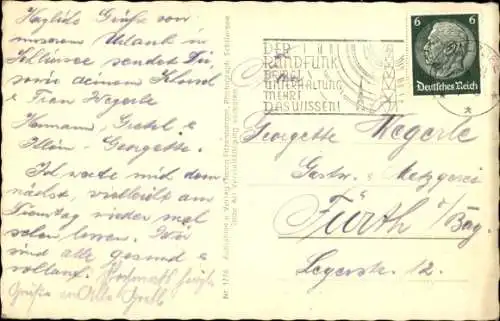 Herzliche Grüße von
unserem Urlaub in
Schliersee sendet Dir,
sowie deinem
u. Frau Wegerle
Hermann, Gretel &
Klein-Georgette.
Ich werde mich dem-
nächst, vielleicht am
Dienstag wieder mal
sehen lassen. Wir
sind alle gesund &
wohlauf. Nochmals herzl.
Grüße an Alle
DER
RUNDFUNK
BRINGT
UNTERHALTUNG
MEHRT
DAS WISSEN!
6 6
Deutsches Reich
Georgette Wegerle
Gastw. & Metzgerei
Fürth i/Bay.
Legerstr. 12.
Nr. 1776
Aufnahme u. Verlag
Photograph, Schliersee